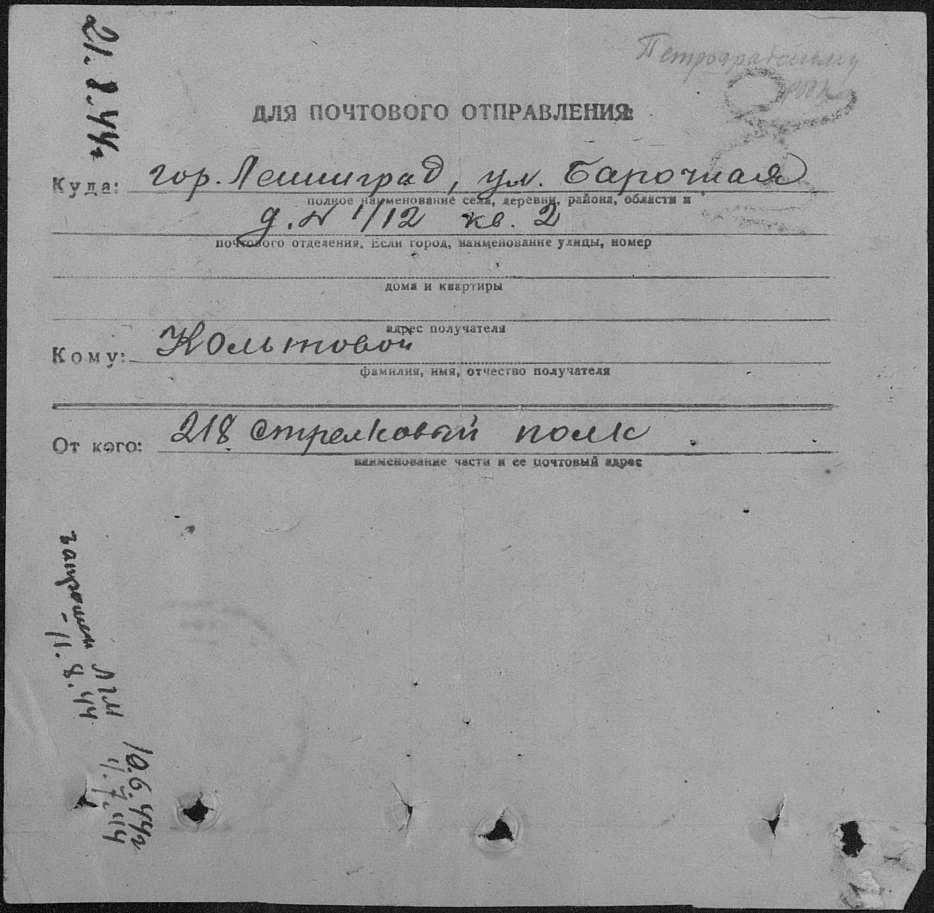 21.8.44г
Петроградскому
РВК
ДЛЯ ПОЧТОВОГО ОТПРАВЛЕНИЯ:
Куда: гор. Ленинград, ул. Барочная
полное наименование села, деревни, района, области и
д. N 1/12 кв. 2
почтового отделения. Если город, наименование улицы, номер
дома и квартиры
адрес получателя
Кому: Кольтовой
фамилия, имя, отчество получателя
От кого: 218 стрелковый полк
наименование части и ее почтовый адрес
11.8.44
10.6.44г
4.7.44